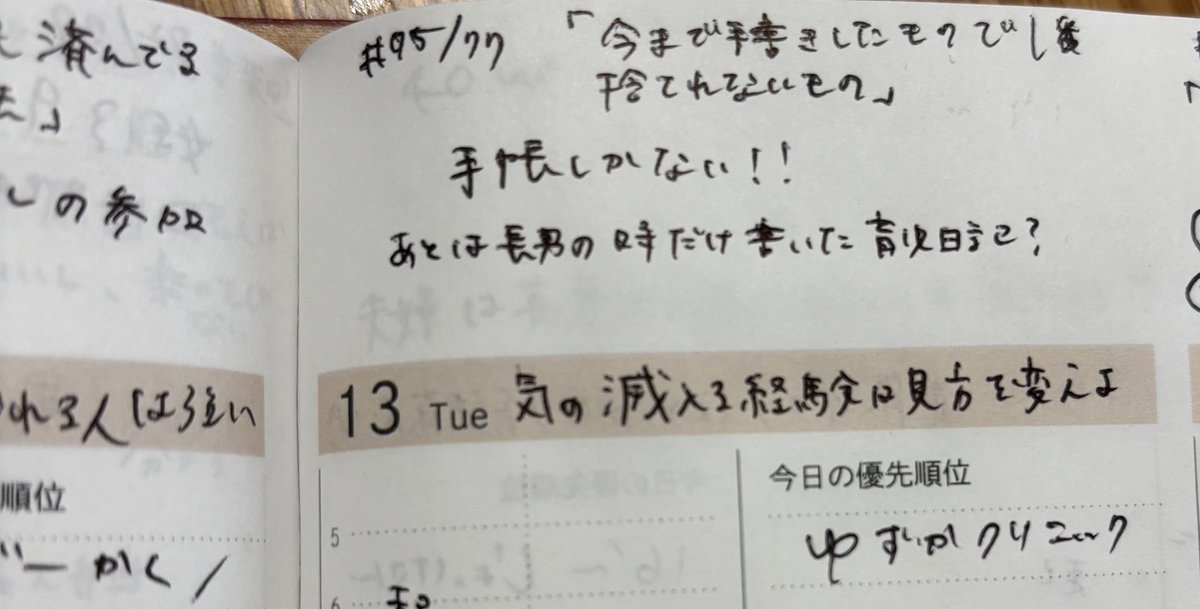 済んでる
」
しの参加
れる人は強い
順位
ーかく/
#95/77 「今まで手書きしたモノで
捨てれないもの」
手帳しかない!!
あとは長男の時だけ書いた育児日記?
13 Tue 気の滅入る経験は見方を変えよ
今日の優先順位
5
ゆずいかクリニック
6